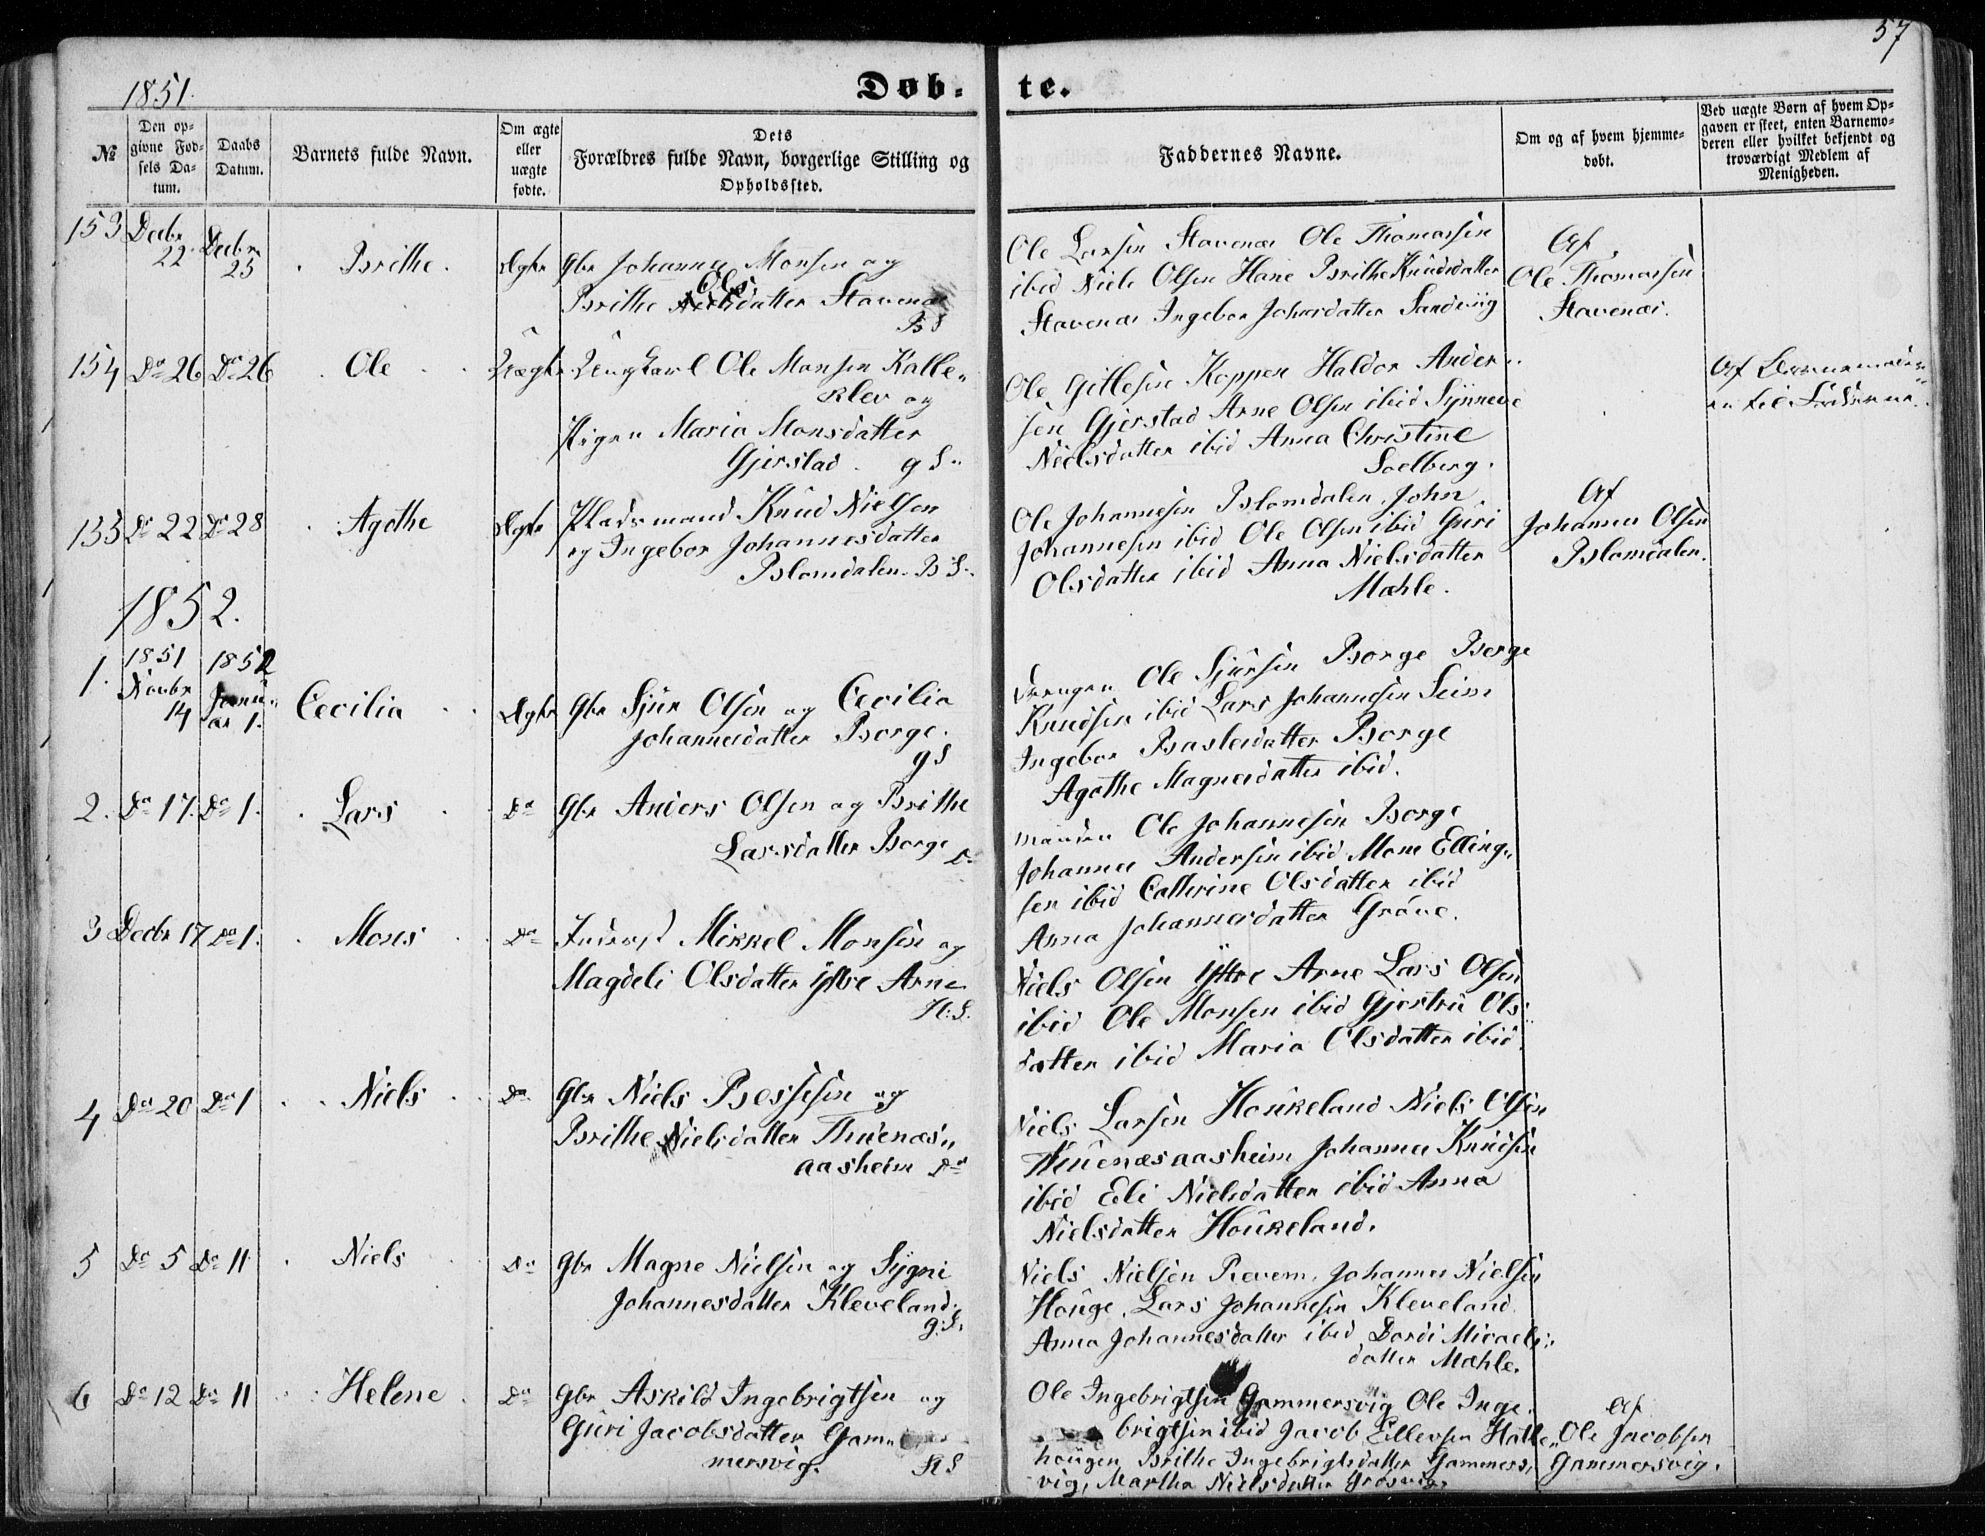 57
1851.
Døb- te.
№
Den opgivne Fødsels Datum.
Daabs Datum.
Barnets fulde Navn.
Om ægte eller uægte fødte.
Dets Forældres fulde Navn, borgerlige Stilling og Opholdssted.
Faddernes Navne.
Om og af hvem hjemmedøbt.
Ved uægte Børn af hvem Opgaven er skeet, enten Barnemoderen eller hvilket bekjendt og troværdigt Medlem af Menigheden.
153 Decbr 22. Decbr 25 Brithe. Ægte
Gbr Johannes Monsen og
Brithe Olsdatter Stavenæs
BS
Ole Larsen Stavenæs Ole Thomassen
ibid Niels Olsen Hane Brithe Knudsdatter
Stavenæs Ingebor Johnsdatter Sandviig
Af
Ole Thomassen
Stavenæs.
154 Do 26 Do 26 Ole Uægte
Ungkarl Ole Monsen Kalle-
klev og
Pigen Maria Monsdatter
Gjerstad. g S.
Ole Gitlesen Koppen Haldor Ander-
sen Gjerstad Arne Olsen ibid Synneve
Nielsdatter ibid Anna Christine
Soelberg.
Af Barnemoder-
en
155 Do 22 Do 28 Agathe Ægte
Pladsmand Knud Nielsen
og Ingebor Johannesdatter
Blomdalen. B S.
Ole Johannesen Blomdalen John
Johannesen ibid Ole Olsen ibid Guri
Olsdatter ibid Anna Nielsdatter
Mæhle.
Af
Johannes Olsen
Blomdalen.
1852.
1. 1851 Novbr 14 1852 Januar 1. Cecilia Ægte
Gbr Sjur Olsen og Cecilia
Johannesdatter Borge.
g S
Drengen Ole Sjursen Borge Børge
Knudsen ibid Lars Johannesen Seim
Ingebor Baslesdatter Borge
Agathe Magnesdatter ibid.
2. Do 17. Do 1. Lars Do
Gbr Anders Olsen og Brithe
Larsdatter Borge Do
manden Ole Johannesen Borge
Johannes Andersen ibid Mons Elling-
sen ibid Cathrine Olsdatter ibid
Anna Johannesdatter Grove.
3 Decbr 17 Do 1. Mons Do
Inderst Mikkel Monsen og
Magdeli Olsdatter Yttre Arne
H. S.
Niels Olsen Yttre Arne Lars Olsen
ibid Ole Monsen ibid Gjertru Ols-
datter ibid Maria Olsdatter ibid.
4 Do 20 Do 1 Niels Do
Gbr Niels Bessesen og
Brithe Nielsdatter Thuenæs-
aasheim Do
Niels Larsen Houkeland Niels Olsen
Thuenæsaasheim Johannes Knudsen
ibid Eli Nielsdatter ibid Anna
Nielsdatter Houkeland.
5 Do 5 Do 11 Niels Do
Gbr Magne Nielsen og Sygni
Johannesdatter Kleveland.
g. S.
Niels Nielsen Revem. Johannes Nielsen
Houge, Lars Johannesen Kleveland.
Anna Johannesdatter ibid Dordi Micaels-
datter Mæhle.
6 Do 12 Do 11 Helene Do
Gbr Askild Ingebrigtsen og
Guri Jacobsdatter Gam-
mersvig. H S
Ole Ingebrigtsen Gammersvig Ole Inge-
brigtsen ibid Jacob Ellevsen Hatle-
hougen Brithe Ingebrigtsdatter Gammers-
vig, Martha Nielsdatter Grosvig.
Af
Ole Jacobsen
Gammersvig.